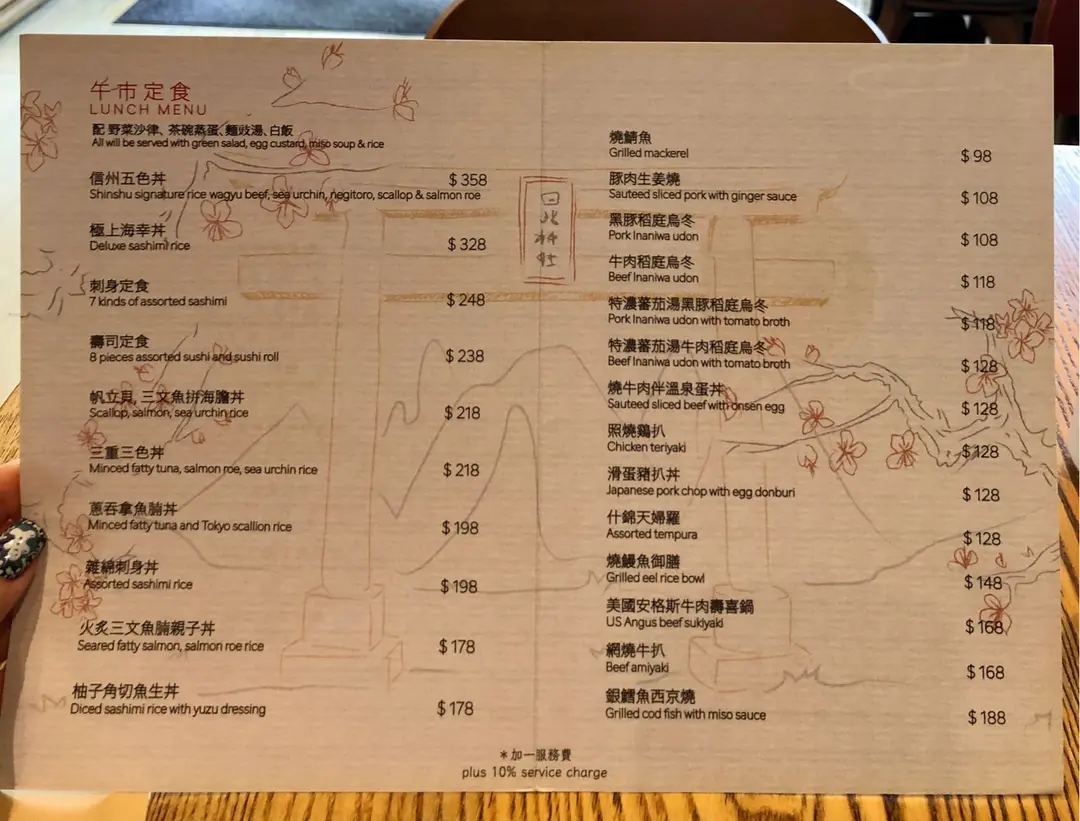 午市定食
LUNCH MENU
配 野菜沙律、茶碗蒸蛋、麵豉湯、白飯
All will be served with green salad, egg custard, miso soup & rice
信州五色丼
$ 358
Shinshu signature rice wagyu beef, sea urchin, negitoro, scallop & salmon roe
極上海幸丼
Deluxe sashimi rice
$ 328
刺身定食
7 kinds of assorted sashimi
$ 248
壽司定食
8 pieces assorted sushi and sushi roll
$ 238
帆立貝, 三文魚拼海膽丼
Scallop, salmon, sea urchin rice
$ 218
三重三色丼
Minced fatty tuna, salmon roe, sea urchin rice
$ 218
蔥吞拿魚腩丼
Minced fatty tuna and Tokyo scallion rice
$ 198
雜錦刺身丼
Assorted sashimi rice
$ 198
火炙三文魚腩親子丼
Seared fatty salmon, salmon roe rice
$ 178
柚子角切魚生丼
Diced sashimi rice with yuzu dressing
$ 178
燒鯖魚
Grilled mackerel
$ 98
豚肉生姜燒
Sauteed sliced pork with ginger sauce
$ 108
黑豚稻庭烏冬
Pork Inaniwa udon
$ 108
牛肉稻庭烏冬
Beef Inaniwa udon
$ 118
特濃蕃茄湯黑豚稻庭烏冬
Pork Inaniwa udon with tomato broth
$ 118
特濃蕃茄湯牛肉稻庭烏冬
Beef Inaniwa udon with tomato broth
$ 128
燒牛肉伴溫泉蛋丼
Sauteed sliced beef with onsen egg
$ 128
照燒鷄扒
Chicken teriyaki
$ 128
滑蛋豬扒丼
Japanese pork chop with egg donburi
$ 128
什錦天婦羅
Assorted tempura
$ 128
燒鰻魚御膳
Grilled eel rice bowl
$ 148
美國安格斯牛肉壽喜鍋
US Angus beef sukiyaki
$ 168
網燒牛扒
Beef amiyaki
$ 168
銀鱈魚西京燒
Grilled cod fish with miso sauce
$ 188
*加一服務費
plus 10% service charge